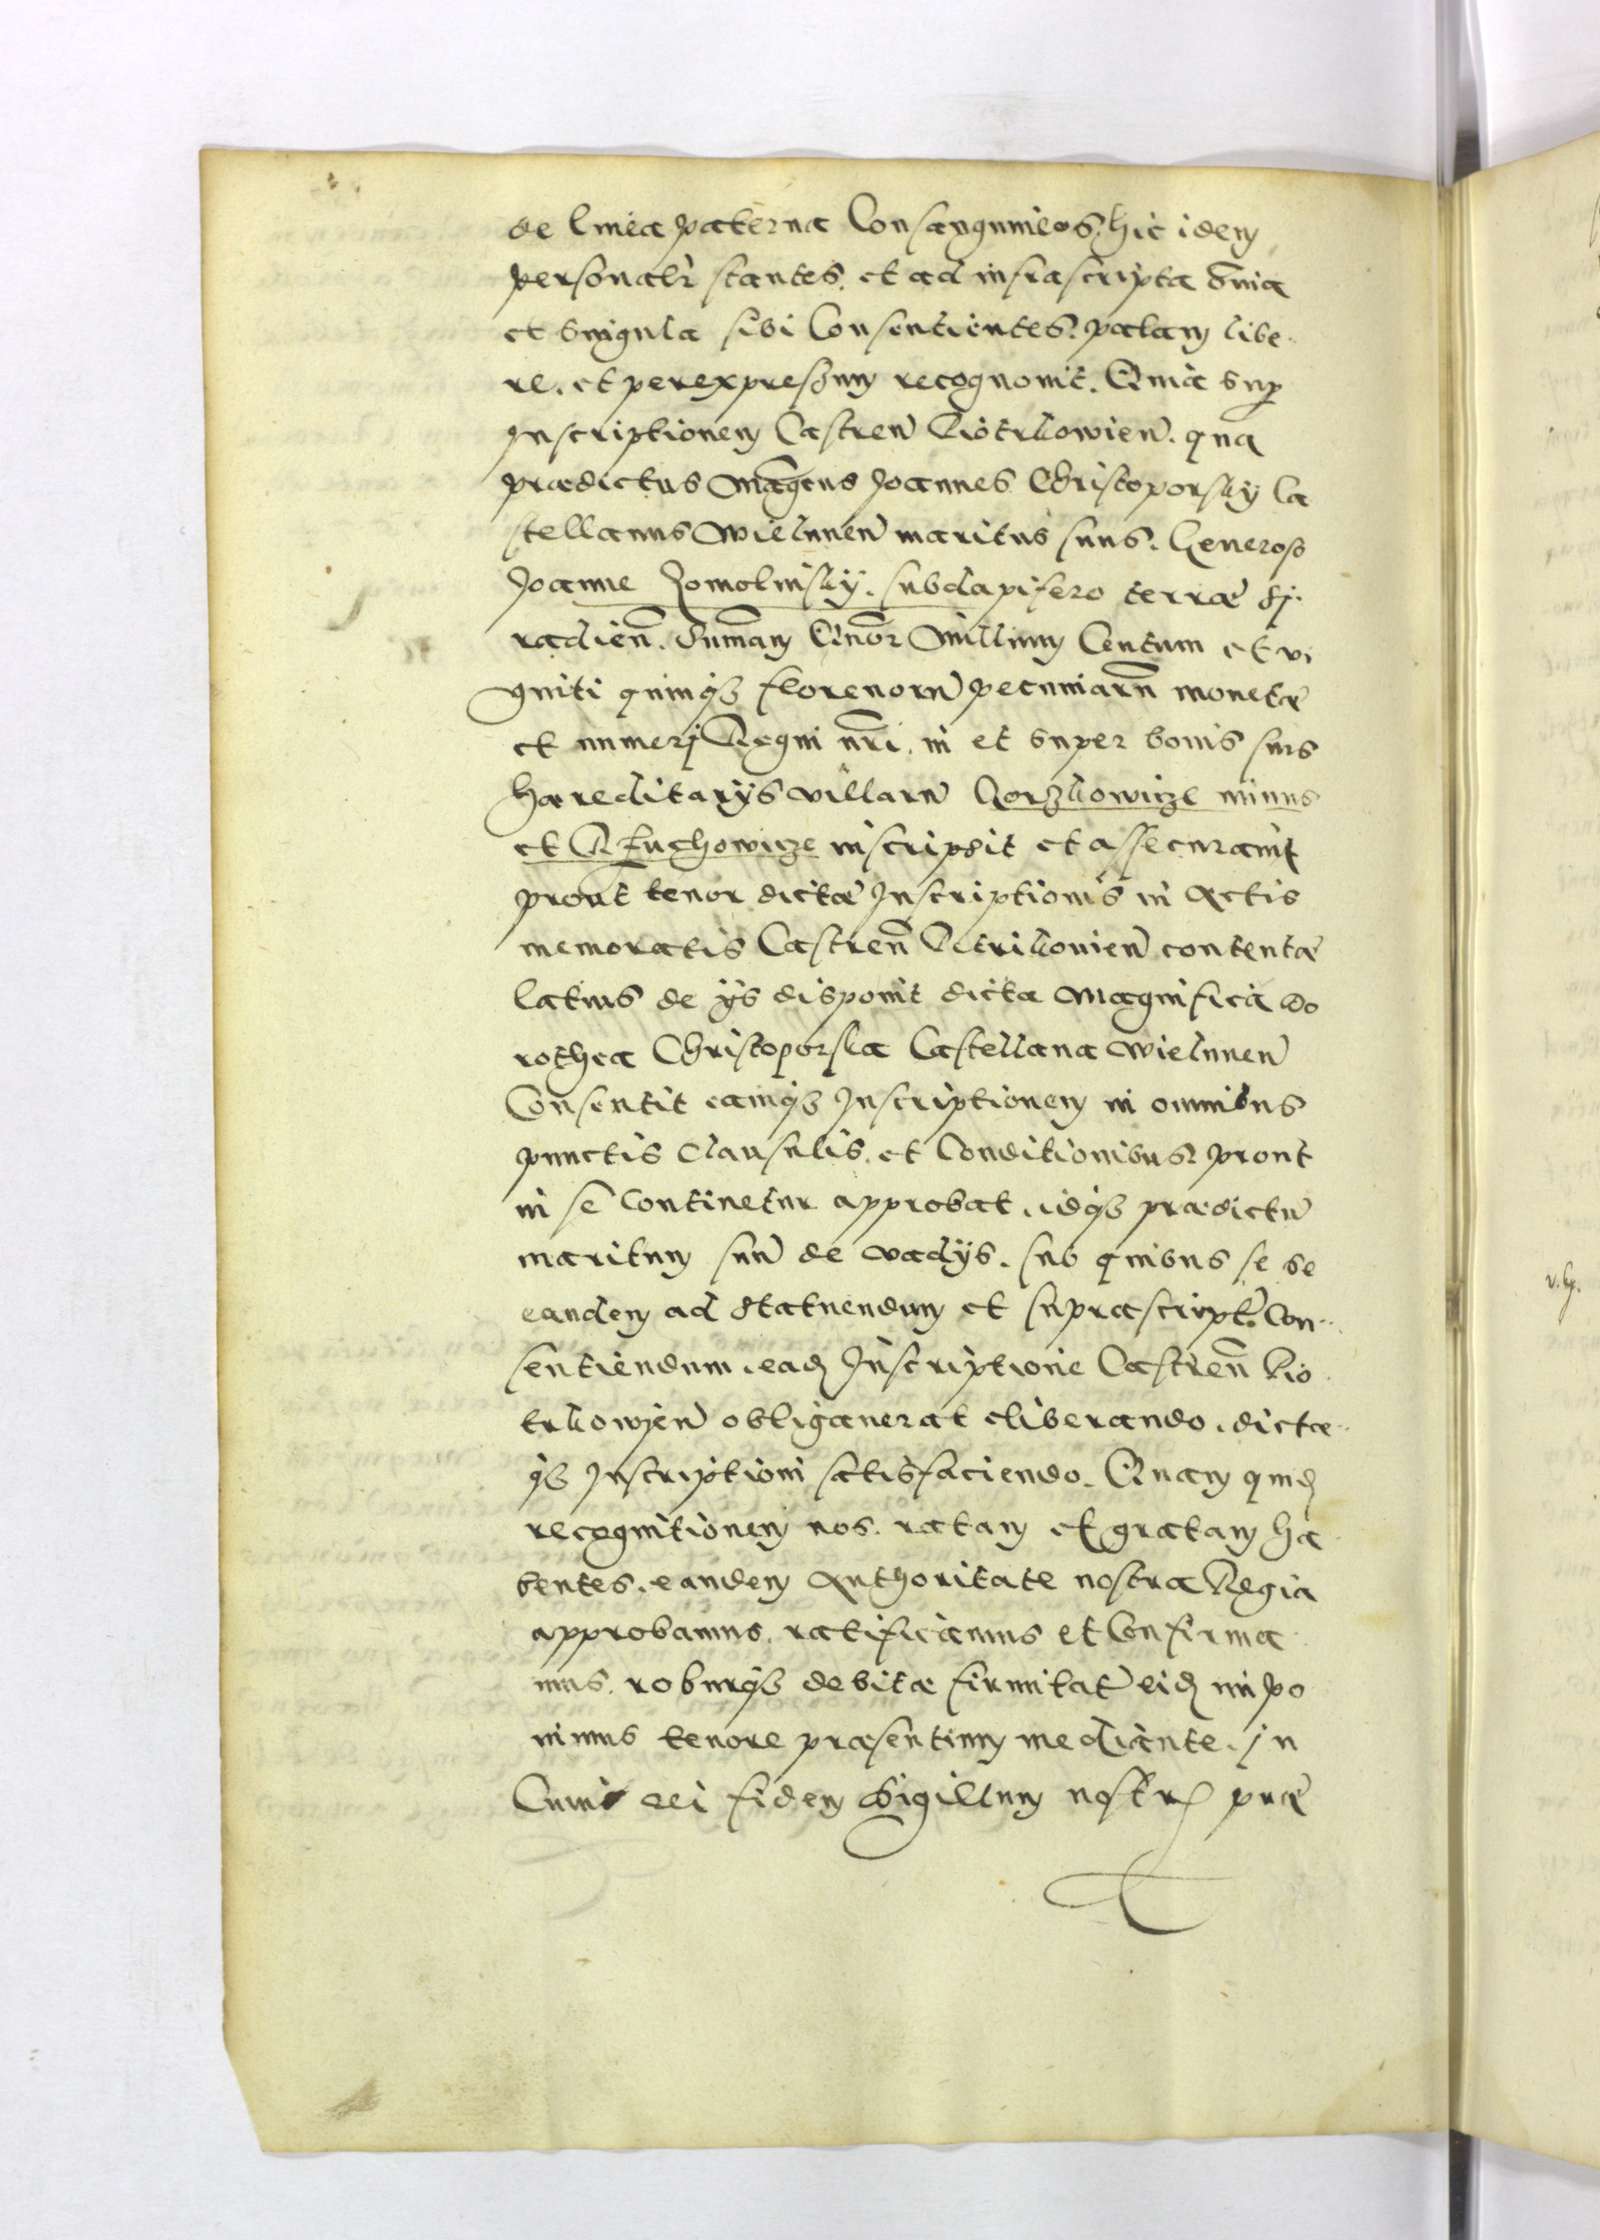 de linea paterna Consanguineos, hic idem
personalr̃ stantes, et ad infrascripta õnia
et singula sibi Consentientes, palam libe-
re, et per expressum recognouit, Quia sup
Inscriptionem Castreñ Piotrkowieñ. qua
prædictus Mãgcus Joannes Christoporsky Ca
stellanus Wieluneñ maritus suus, Generoso
Joanne Zomolinsky, subdapifero terræ Sy-
radieñ. Summam Quõr Millium Centum et vi
ginti quinq3 florenorũ pecuniarũ monetæ
et numerj Regni nr̃i, in et super bonis suis
hæreditarijs villarũ Borzkowicze minus
et Stuchowicze inscripsit et assecurauit
prout tenor dictæ Inscriptionis in Actis
memoratis Castreñ Petrikouieñ contentæ
latius de ijs disponit dicta Magnifica Do
rothea Christoporska Castellana Wieluneñ
Consentit eamq3 Inscriptionem in omnibus
punctis Clausulis, et Conditionibus, prout
in se Continetur approbat, idq3 prædictũ
maritum suũ de vadijs, sub quibus se se
eandem ad statuendum et suprascript: Con-
sentiendum, ead Inscriptione Castreñ Pio
trkowjeñ obligauerat eliberando, dictæ-
q3 Inscriptioni satisfaciendo. Quam quid
recognitionem nos, ratam et gratam ha
bentes, eandem Authoritate nostra Regia
approbamus, ratificamus et Confirma
mus, roburq3 debitæ firmitat̃ eid impo
nimus tenore præsentium mediante, in
Cuius rei fidem Sigillum nostrũ præ